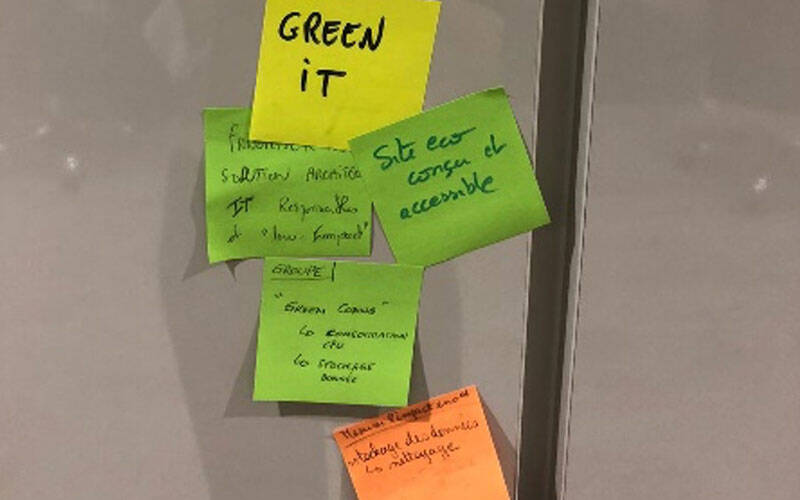 GREEN
iT
SOLUTION
IT Responsables
et "low-impact"
Site eco
conçu et
accessible
GROUPE 1
"GREEN CODING"
↳ CONSOMMATION
CPU
↳ STOCKAGE
DONNÉE
stockage des données
↳ nettoyage